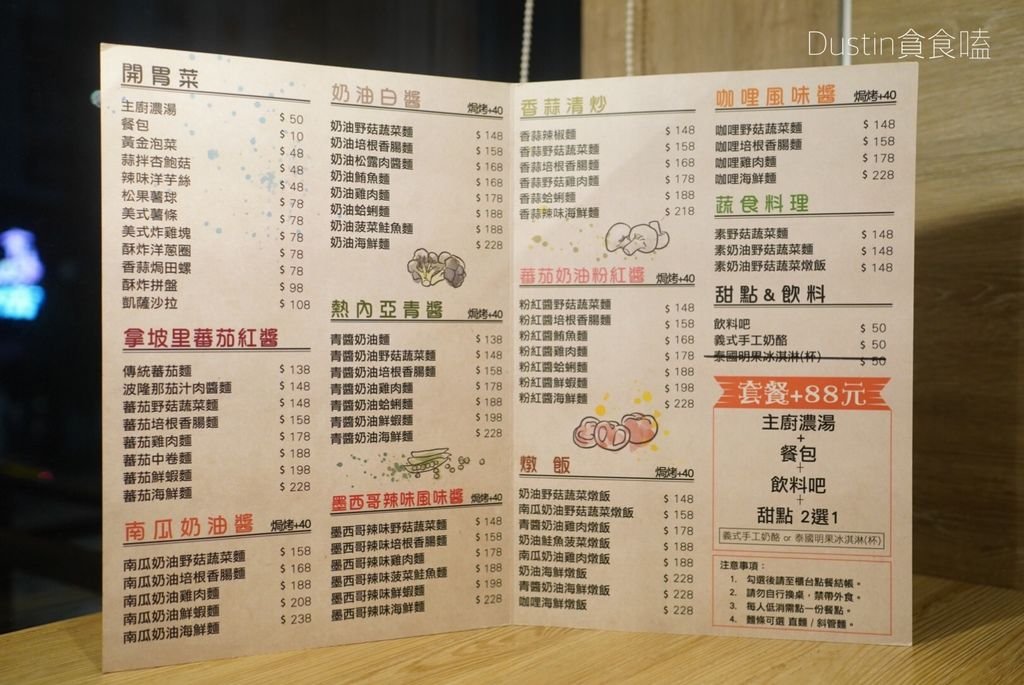 Dustin貪食嗑
開胃菜
主廚濃湯 $50
餐包 $10
黃金泡菜 $48
蒜拌杏鮑菇 $48
辣味洋芋絲 $48
松果薯球 $78
美式薯條 $78
美式炸雞塊 $78
酥炸洋蔥圈 $78
香蒜焗田螺 $78
酥炸拼盤 $98
凱薩沙拉 $108
拿坡里蕃茄紅醬
傳統蕃茄麵 $138
波隆那茄汁肉醬麵 $148
蕃茄野菇蔬菜麵 $148
蕃茄培根香腸麵 $158
蕃茄雞肉麵 $178
蕃茄中卷麵 $188
蕃茄鮮蝦麵 $198
蕃茄海鮮麵 $228
南瓜奶油醬 焗烤+40
南瓜奶油野菇蔬菜麵 $158
南瓜奶油培根香腸麵 $168
南瓜奶油雞肉麵 $188
南瓜奶油鮮蝦麵 $208
南瓜奶油海鮮麵 $238
奶油白醬 焗烤+40
奶油野菇蔬菜麵 $148
奶油培根香腸麵 $158
奶油松露肉醬麵 $168
奶油鮪魚麵 $168
奶油雞肉麵 $178
奶油蛤蜊麵 $188
奶油菠菜鮭魚麵 $188
奶油海鮮麵 $228
熱內亞青醬 焗烤+40
青醬奶油麵 $138
青醬奶油野菇蔬菜麵 $148
青醬奶油培根香腸麵 $158
青醬奶油雞肉麵 $178
青醬奶油蛤蜊麵 $188
青醬奶油鮮蝦麵 $198
青醬奶油海鮮麵 $228
墨西哥辣味風味醬 焗烤+40
墨西哥辣味野菇蔬菜麵 $148
墨西哥辣味培根香腸麵 $158
墨西哥辣味雞肉麵 $178
墨西哥辣味菠菜鮭魚麵 $188
墨西哥辣味鮮蝦麵 $198
墨西哥辣味海鮮麵 $228
香蒜清炒
香蒜辣椒麵 $148
香蒜野菇蔬菜麵 $158
香蒜培根香腸麵 $168
香蒜野菇雞肉麵 $178
香蒜蛤蜊麵 $188
香蒜辣味海鮮麵 $218
蕃茄奶油粉紅醬 焗烤+40
粉紅醬野菇蔬菜麵 $148
粉紅醬培根香腸麵 $158
粉紅醬鮪魚麵 $168
粉紅醬雞肉麵 $178
粉紅醬蛤蜊麵 $188
粉紅醬鮮蝦麵 $198
粉紅醬海鮮麵 $228
燉飯 焗烤+40
奶油野菇蔬菜燉飯 $148
南瓜奶油野菇蔬菜燉飯 $158
青醬奶油雞肉燉飯 $178
奶油鮭魚菠菜燉飯 $188
南瓜奶油雞肉燉飯 $188
奶油海鮮燉飯 $228
青醬奶油海鮮燉飯 $228
咖哩海鮮燉飯 $228
咖哩風味醬 焗烤+40
咖哩野菇蔬菜麵 $148
咖哩培根香腸麵 $158
咖哩雞肉麵 $178
咖哩海鮮麵 $228
蔬食料理
素野菇蔬菜麵 $148
素奶油野菇蔬菜麵 $148
素奶油野菇蔬菜燉飯 $148
甜點&飲料
飲料吧 $50
義式手工奶酪 $50
泰國明果冰淇淋(杯) $50
套餐+88元
主廚濃湯
+
餐包
+
飲料吧
+
甜點 2選1
義式手工奶酪 or 泰國明果冰淇淋(杯)
注意事項：
1. 勾選後請至櫃台點餐結帳。
2. 請勿自行換桌，禁帶外食。
3. 每人低消需點一份餐點。
4. 麵條可選 直麵 / 斜管麵。